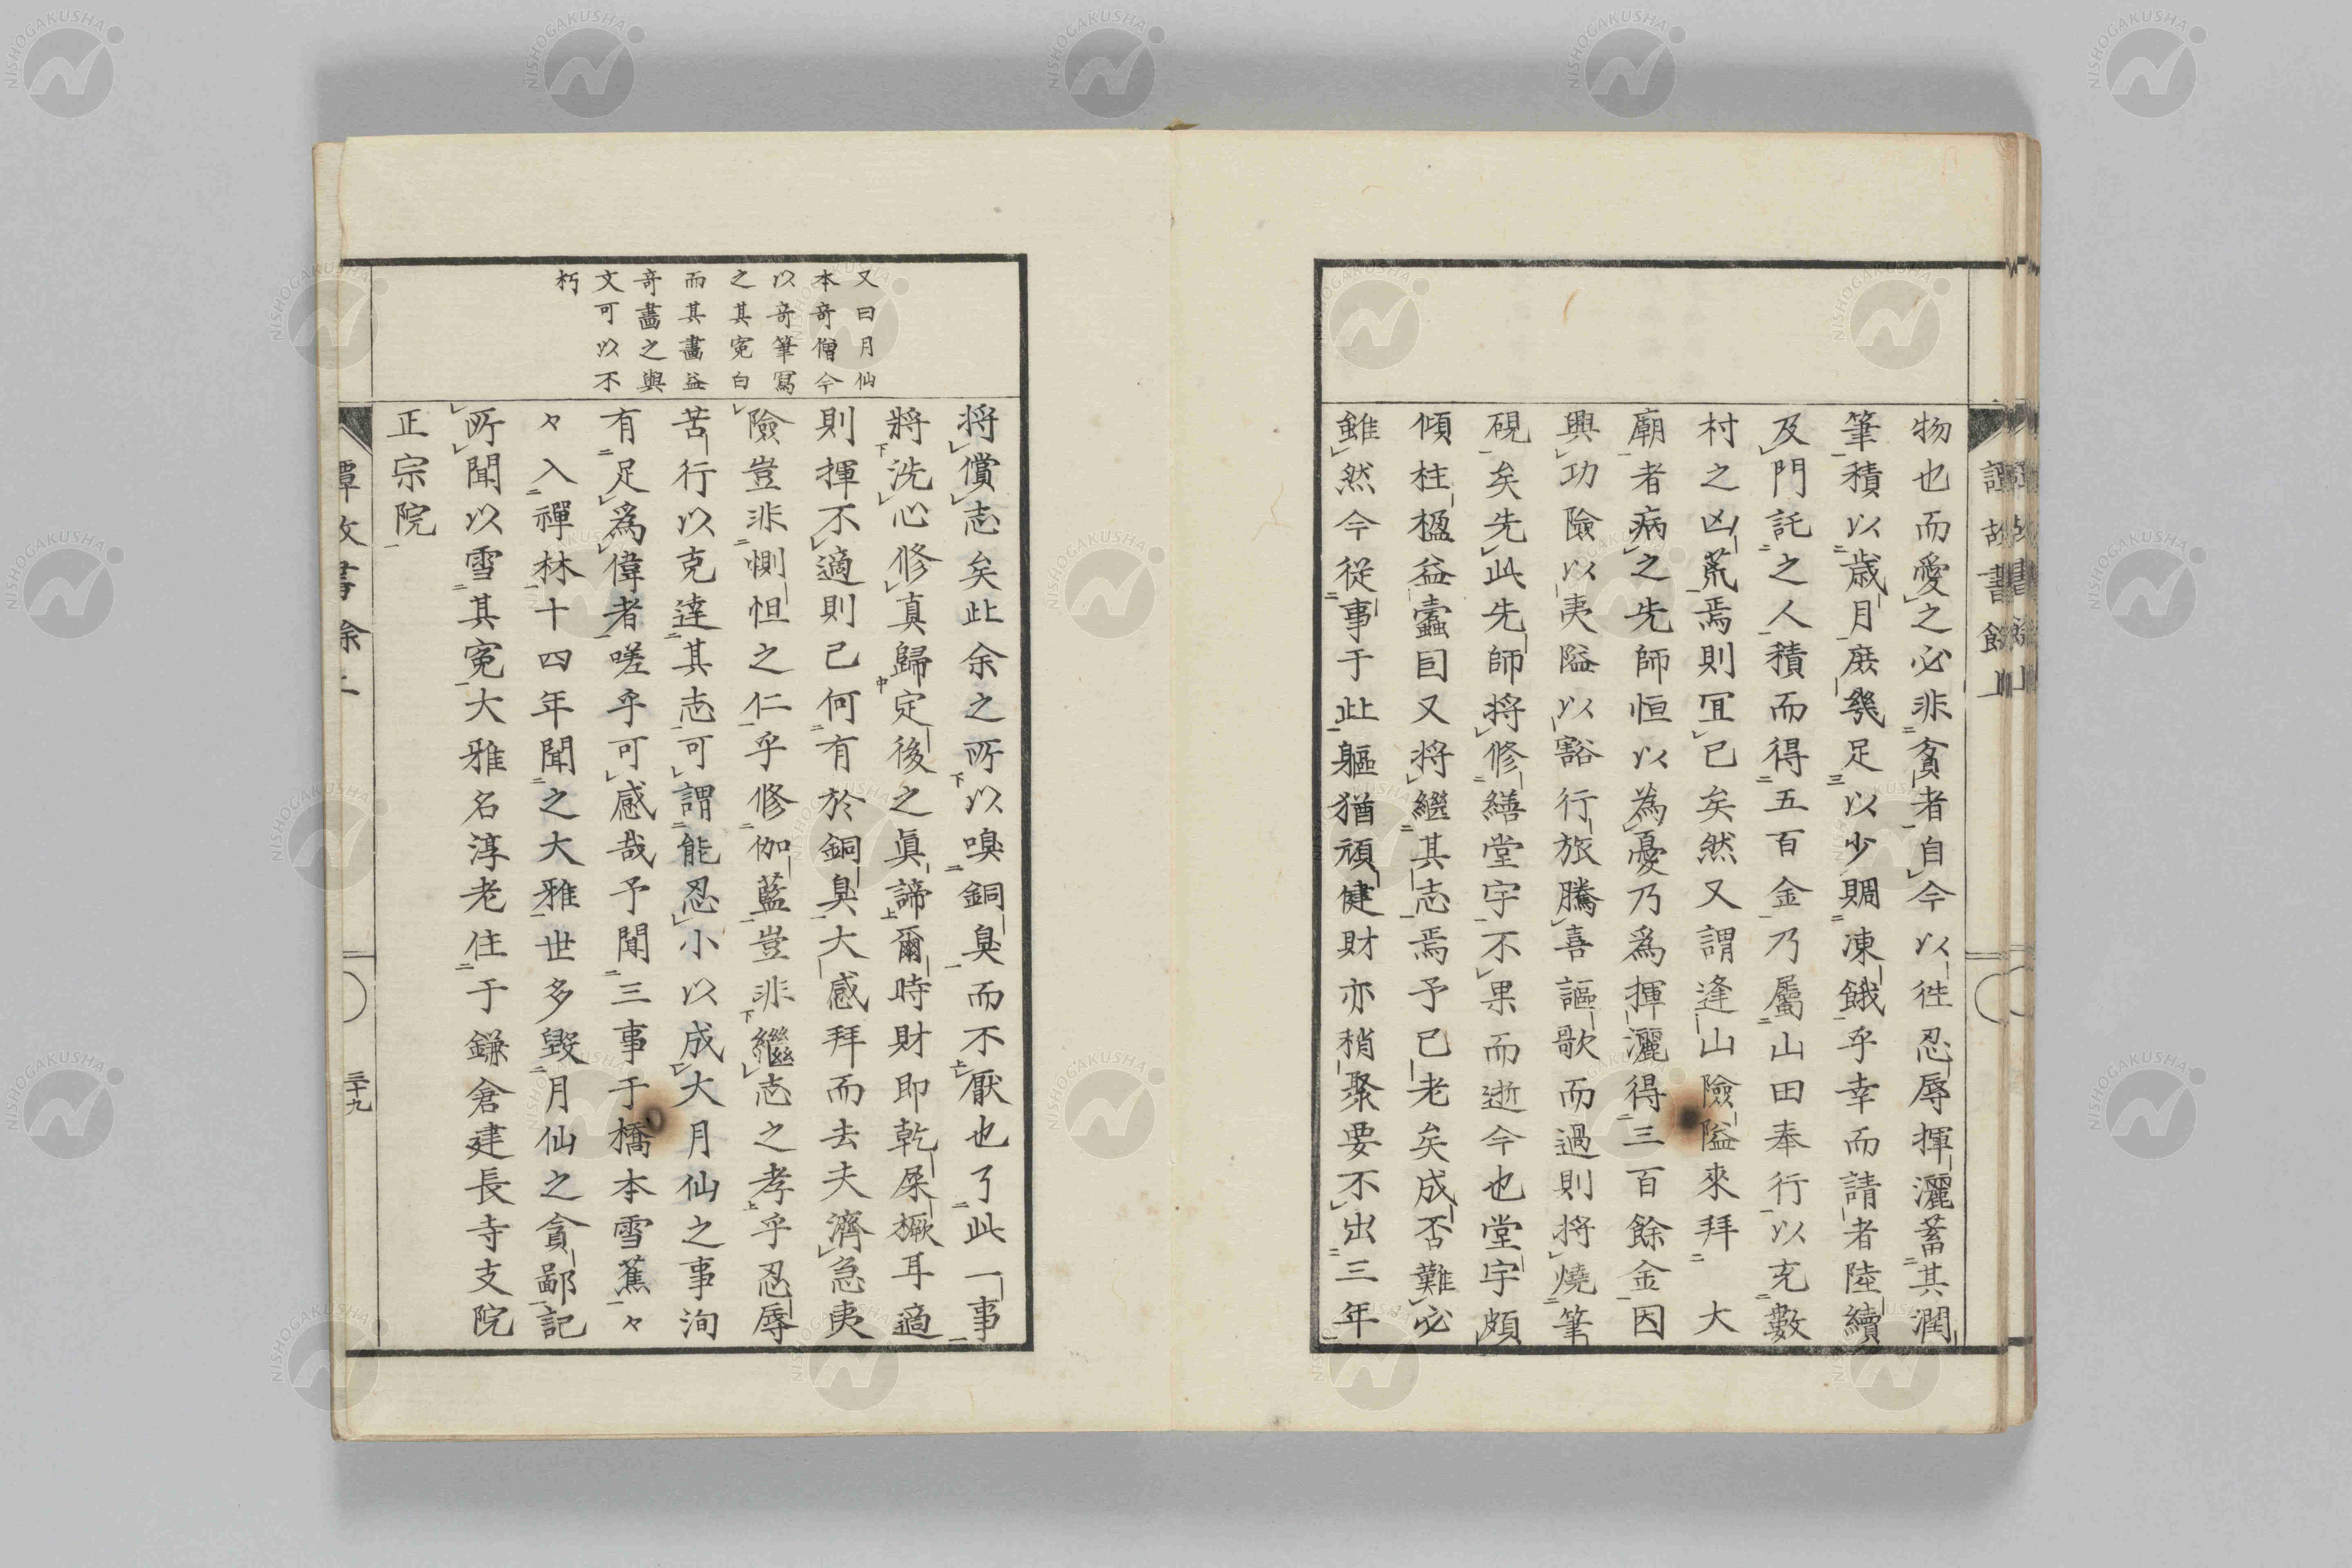 物也而愛之必非貪者自今以徃忍辱揮灑蓄其潤
筆積以歳月庶幾足以少賙凍餓乎幸而請者陸續
及門託之人積而得五百金乃屬山田奉行以充數
村之凶荒焉則冝已矣然又謂逢山險隘來拜 大
廟者病之先師恒以為憂乃爲揮灑得三百餘金因
興功險以夷隘以豁行旅騰喜謳歌而過則将燒筆
硯矣先此先師将修繕堂宇不果而逝今也堂宇頗
傾柱楹益蠹囙又将繼其志焉予已老矣成否難必
雖然今從事于此軀猶頑健財亦稍聚要不出三年
将償志矣此余之所以嗅銅臭而不厭也了此一事
將洗心修真歸定後之眞諦爾時財即乾屎橛耳適
則揮不適則已何有於銅臭大感拜而去夫濟急夷
險豈非惻怛之仁乎修伽藍豈非繼志之孝乎忍辱
苦行以克達其志可謂能忍小以成大月仙之事洵
有足爲偉者嗟乎可感哉予聞三事于橋本雪蕉々
々入禪林十四年聞之大雅世多毀月仙之貪鄙記
所聞以雪其寃大雅名淳老住于鎌倉建長寺支院
正宗院
又曰月仙
本奇僧今
以奇筆寫
之其寃白
而其畵益
奇畵之與
文可以不
朽
譚故書餘上
三十九
NISHOGAKUSHA